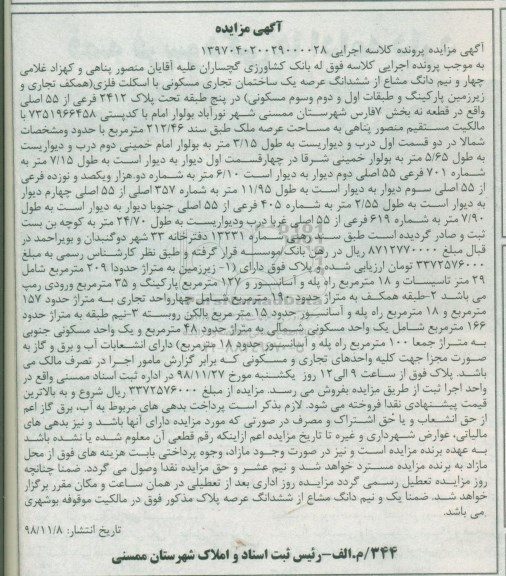 آگهی مزایده
آگهی مزایده پرونده کلاسه اجرایی ۱۳۹۷۰۴۰۲۰۰۲۹۰۰۰۰۲۸
به موجب پرونده اجرایی کلاسه فوق له بانک کشاورزی گچساران علیه آقایان منصور پناهی و کهزاد غلامی
چهار و نیم دانگ مشاع از ششدانگ عرصه یک ساختمان تجاری مسکونی با اسکلت فلزی(همکف تجاری و
زیرزمین پارکینگ و طبقات اول و دوم وسوم مسکونی) در پنج طبقه تحت پلاک ۲۴۱۲ فرعی از ۵۵ اصلی
واقع در قطعه نه بخش ۷فارس شهرستان ممسنی شهر نورآباد بولوار امام با کدپستی ۷۳۵۱۹۶۶۴۵۸ با
مالکیت مستقیم منصور پناهی به مساحت عرصه ملک طبق سند ۲۱۲/۴۶ مترمربع با حدود ومشخصات
شمالا در دو قسمت اول درب و دیواریست به طول ۳/۱۵ متر به بولوار امام خمینی دوم درب و دیواریست
به طول ۵/۶۵ متر به بولوار خمینی شرقا در چهارقسمت اول دیوار به دیوار است به طول ۷/۱۵ متر به
شماره ۷۰۱ فرعی ۵۵ اصلی دوم دیوار به دیوار است ۶/۱۰ متر به شماره دو هزار ویکصد و نوزده فرعی
از ۵۵ اصلی سوم دیوار به دیوار است به طول ۱۱/۹۵ متر به شماره ۳۵۷ اصلی از ۵۵ اصلی چهارم دیوار
به دیوار است به طول ۲/۵۵ متر به شماره ۴۰۵ فرعی از ۵۵ اصلی جنوبا دیوار به دیوار است به طول
۷/۹۰ متر به شماره ۶۱۹ فرعی از ۵۵ اصلی غربا درب ودیواریست به طول ۲۴/۷۰ متر به کوچه بن بست
ثبت و صادر گردیده است طبق سند رهنی شماره ۱۳۲۳۱ دفترخانه ۳۳ شهر دوگنبدان و بویراحمد در
قبال مبلغ ۸۷۱۲۷۷۰۰۰۰ ریال در رهن بانک/موسسه قرار گرفته و طبق نظر کارشناس رسمی به مبلغ
۳۳۷۲۵۷۶۰۰۰ تومان ارزیابی شده و پلاک فوق دارای (۱- زیرزمین به متراژ حدودا ۲۰۹ مترمربع شامل
۲۹ متر تاسیسات و ۱۸ مترمربع راه پله و آسانسور و ۱۲۷ مترمربع پارکینگ و ۳۵ مترمربع ورودی رمپ
می باشد ۲-طبقه همکف به متراژ حدود ۱۹۰ مترمربع شامل چهارواحد تجاری به متراژ حدود ۱۵۷
مترمربع و ۱۸ مترمربع راه پله و آسانسور حدود ۱۵ متر مربع بالکن روبسته ۳-نیم طبقه به متراژ حدود
۱۶۶ مترمربع شامل یک واحد مسکونی شمالی به متراژ حدود ۴۸ مترمربع و یک واحد مسکونی جنوبی
به متراژ جمعا ۱۰۰ مترمربع راه پله و آسانسور حدود ۱۸ مترمربع) دارای انشعابات آب و برق و گاز به
صورت مجزا جهت کلیه واحدهای تجاری و مسکونی که برابر گزارش مامور اجرا در تصرف مالک می
باشد. پلاک فوق از ساعت ۹ الی۱۲ روز یکشنبه مورخ ۹۸/۱۱/۲۷ در اداره ثبت اسناد مسنی واقع در
واحد اجرا ثبت از طریق مزایده بفروش می رسد. مزایده از مبلغ ۳۳۷۲۵۷۶۰۰۰۰ ریال شروع و به بالاترین
قیمت پیشنهادی نقدا فروخته می شود. لازم بذکر است پرداخت بدهی های مربوط به آب، برق گاز اعم
از حق انشعاب و یا حق اشتراک و مصرف در صورتی که مورد مزایده دارای آنها باشد و نیز بدهی های
مالیاتی، عوارض شهرداری و غیره تا تاریخ مزایده اعم ازاینکه رقم قطعی آن معلوم شده یا نشده باشد
به عهده برنده مزایده است و نیز در صورت وجود مازاد، وجوه پرداختی بابت هزینه های فوق از محل
مازاد به برنده مزایده مسترد خواهد شد و نیم عشر و حق مزایده نقدا وصول می گردد. ضمنا چنانچه
روز مزایده تعطیل رسمی گردد مزایده روز اداری بعد از تعطیلی در همان ساعت و مکان مقرر برگزار
خواهد شد. ضمنا یک و نیم دانگ مشاع از ششدانگ عرصه پلاک مذکور فوق در مالکیت موقوفه بوشهری
می باشد.
تاریخ انتشار: ۹۸/۱۱/۸
۳۴۴/م.الف-رئیس ثبت اسناد و املاک شهرستان ممسنی